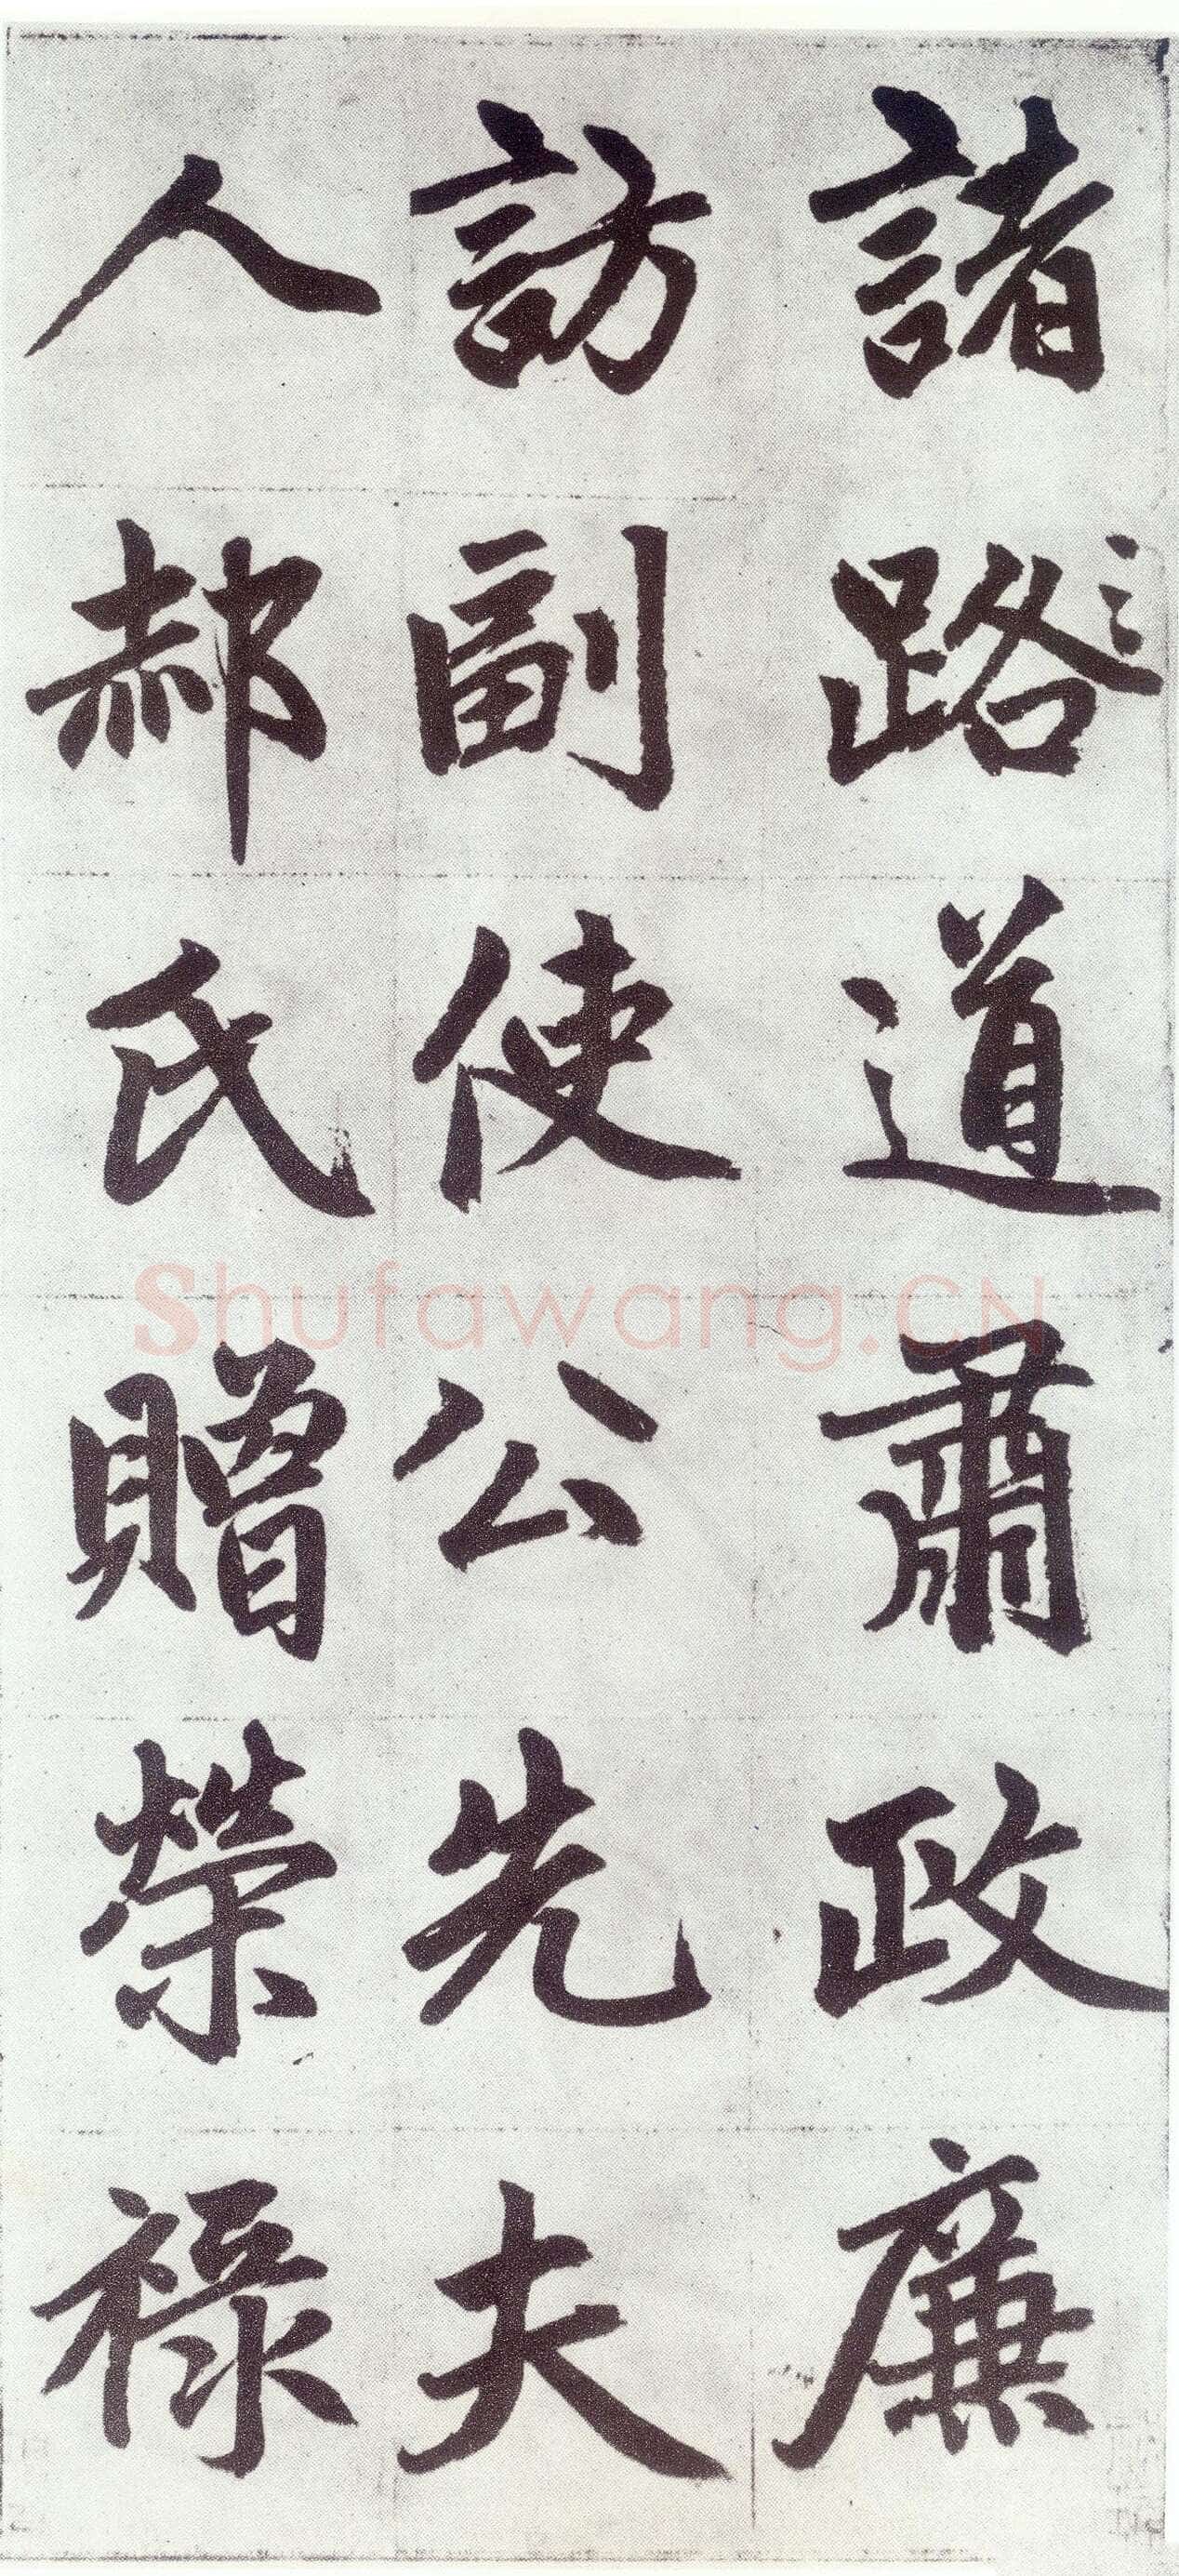 諸路道肅政廉
訪副使公先夫
人郝氏贈榮祿
Shufawang.CN